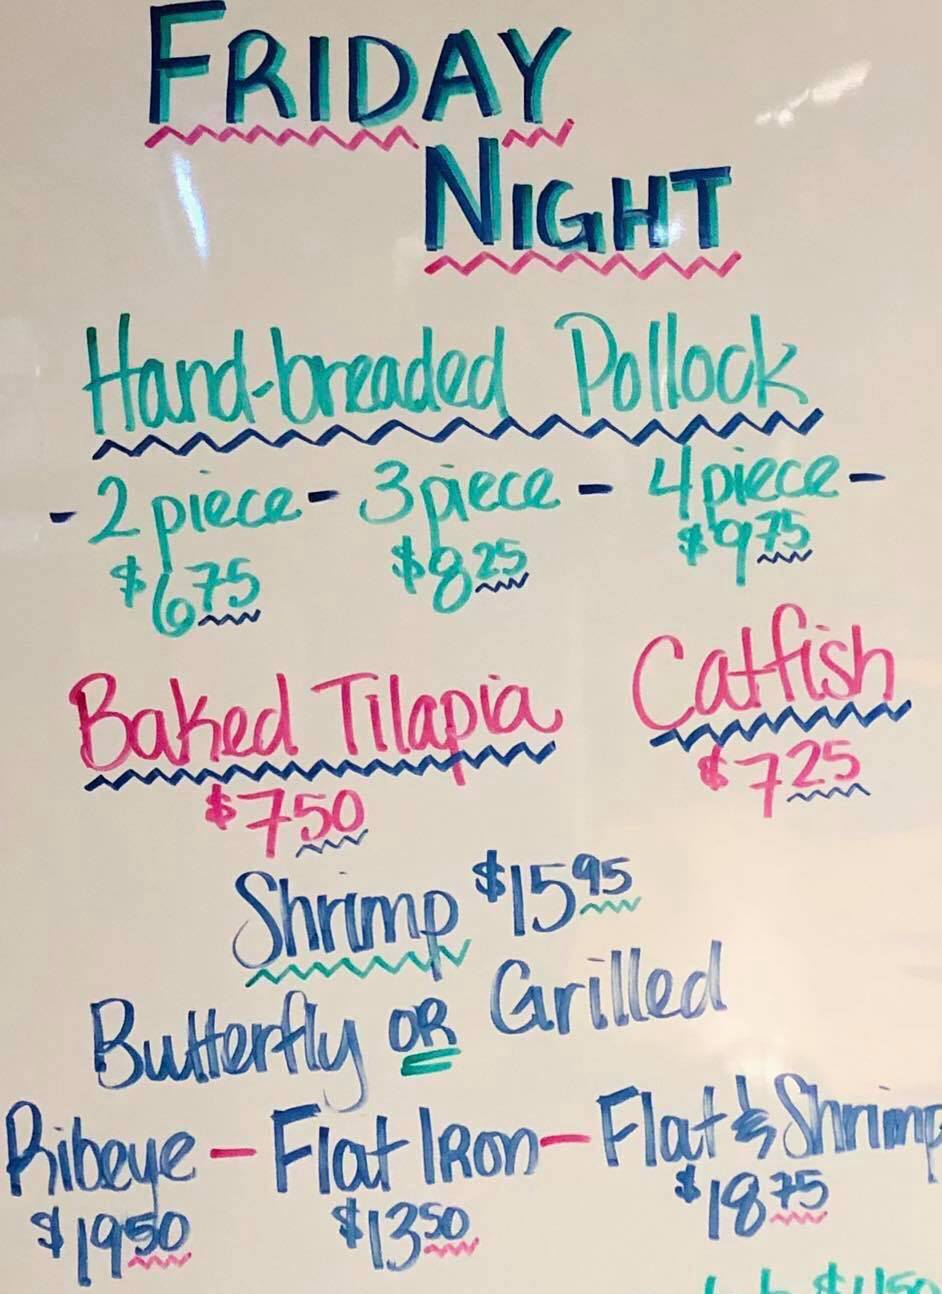 FRIDAY
NIGHT
Hand-breaded Pollock
- 2 piece - 3 piece - 4 piece -
$6 75 $8 25 $9 75
Baked Tilapia Catfish
$7 50 $7 25
Shrimp $15 95
Butterfly OR Grilled
Ribeye - Flat Iron - Flat & Shrimp
$19 50 $13 50 $18 75